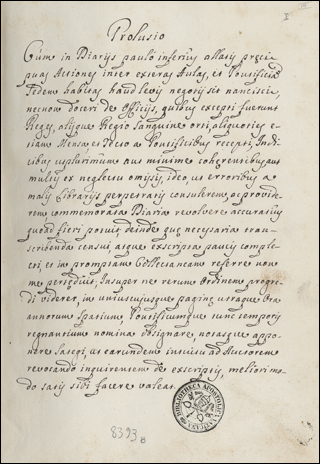 Prolusio
Cum in Diarijs paulo inferius allatis præci
puas Actiones inter exteras Aulas, et Pontificiã
Sedem habitas haud levis negotij sit nancisci,
necnon doceri de Officijs, quibus excepti fuerunt
Reges, alijque Regio Sanguine orti, aliquoties e-
tiam Mensa, et Tecto a Pontificibus recepti, Indi-
cibus usplurimum aut minime cohærentibus, aut
multis ex neglectu omissis, ideo, ut erroribus a
malis librarijs perpetratis consulerem, ac provide-
rem commemorata Diaria revolvere accuratius
quoad fieri potuit, deinde quæ necessaria tran-
scribenda censui, atque exscripta paucis comple-
cti, et in promptam Collectaneam referre non
me pertæduit; Insuper ne rerum Ordinem progre-
di viderer, in uniuscujusque paginæ utraque Ora
annorum Spatium, Pontificumque tunc temporis
regnantium nomina obsignare, notasque appo-
nere sategi, ut earundem intuitu ad Auctorem
revocando inquirentem de exscriptis, meliori mo-
do satis sibi facere valeat.
8393
BIBLIOTHECA APOSTOLICA VATICANA